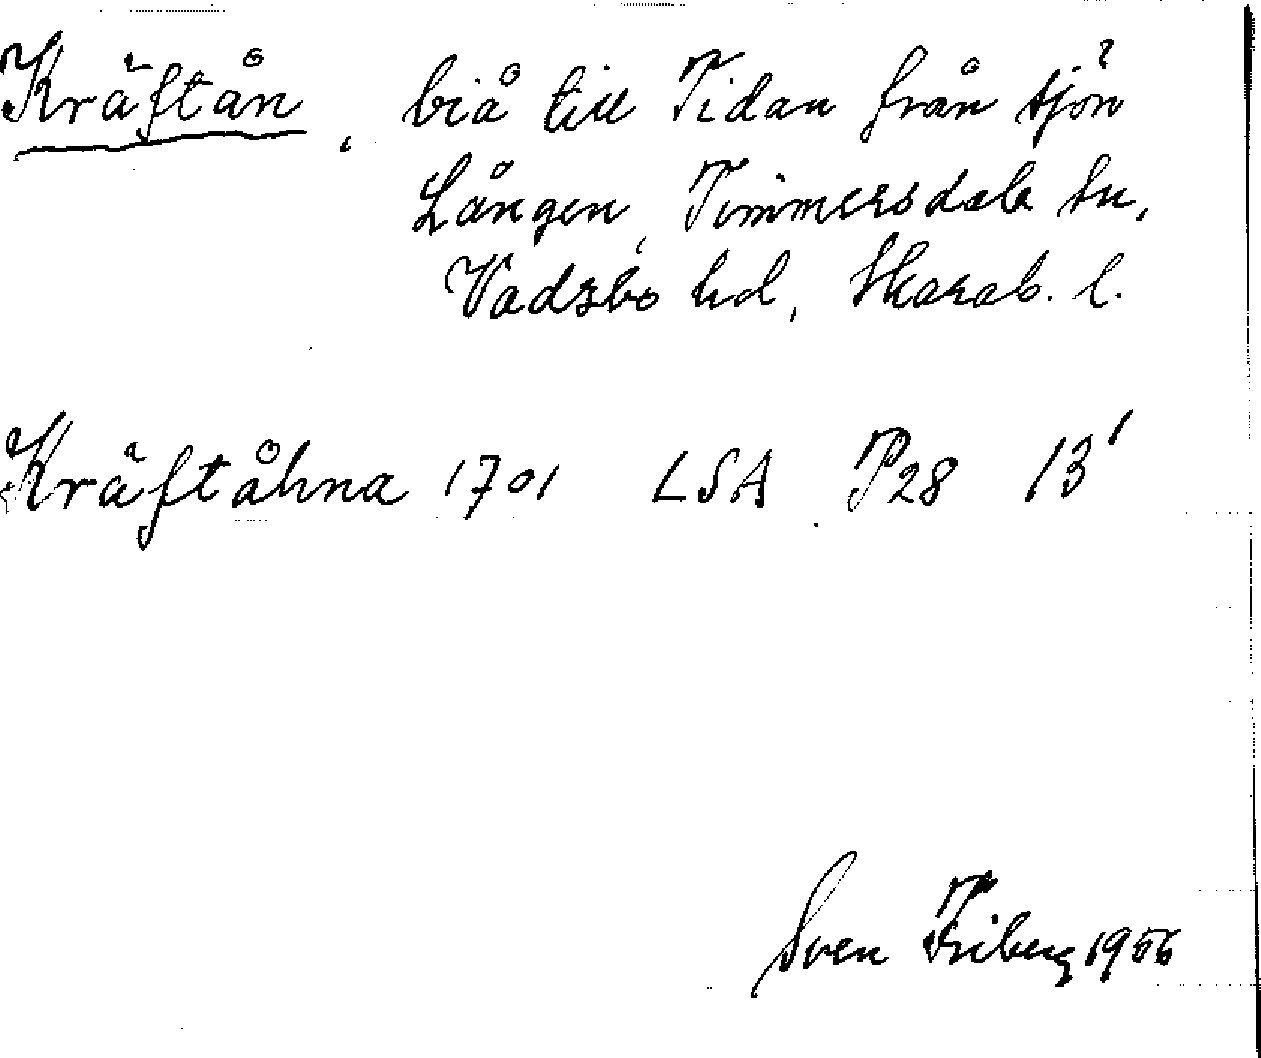 Kräftån, biå till Tidan från sjön
Lången, Timmersdala sn,
Vadsbo hd, Skarab. l.
Kräftåhna 1701 LSA P28 13'
Sven Friberg 1956